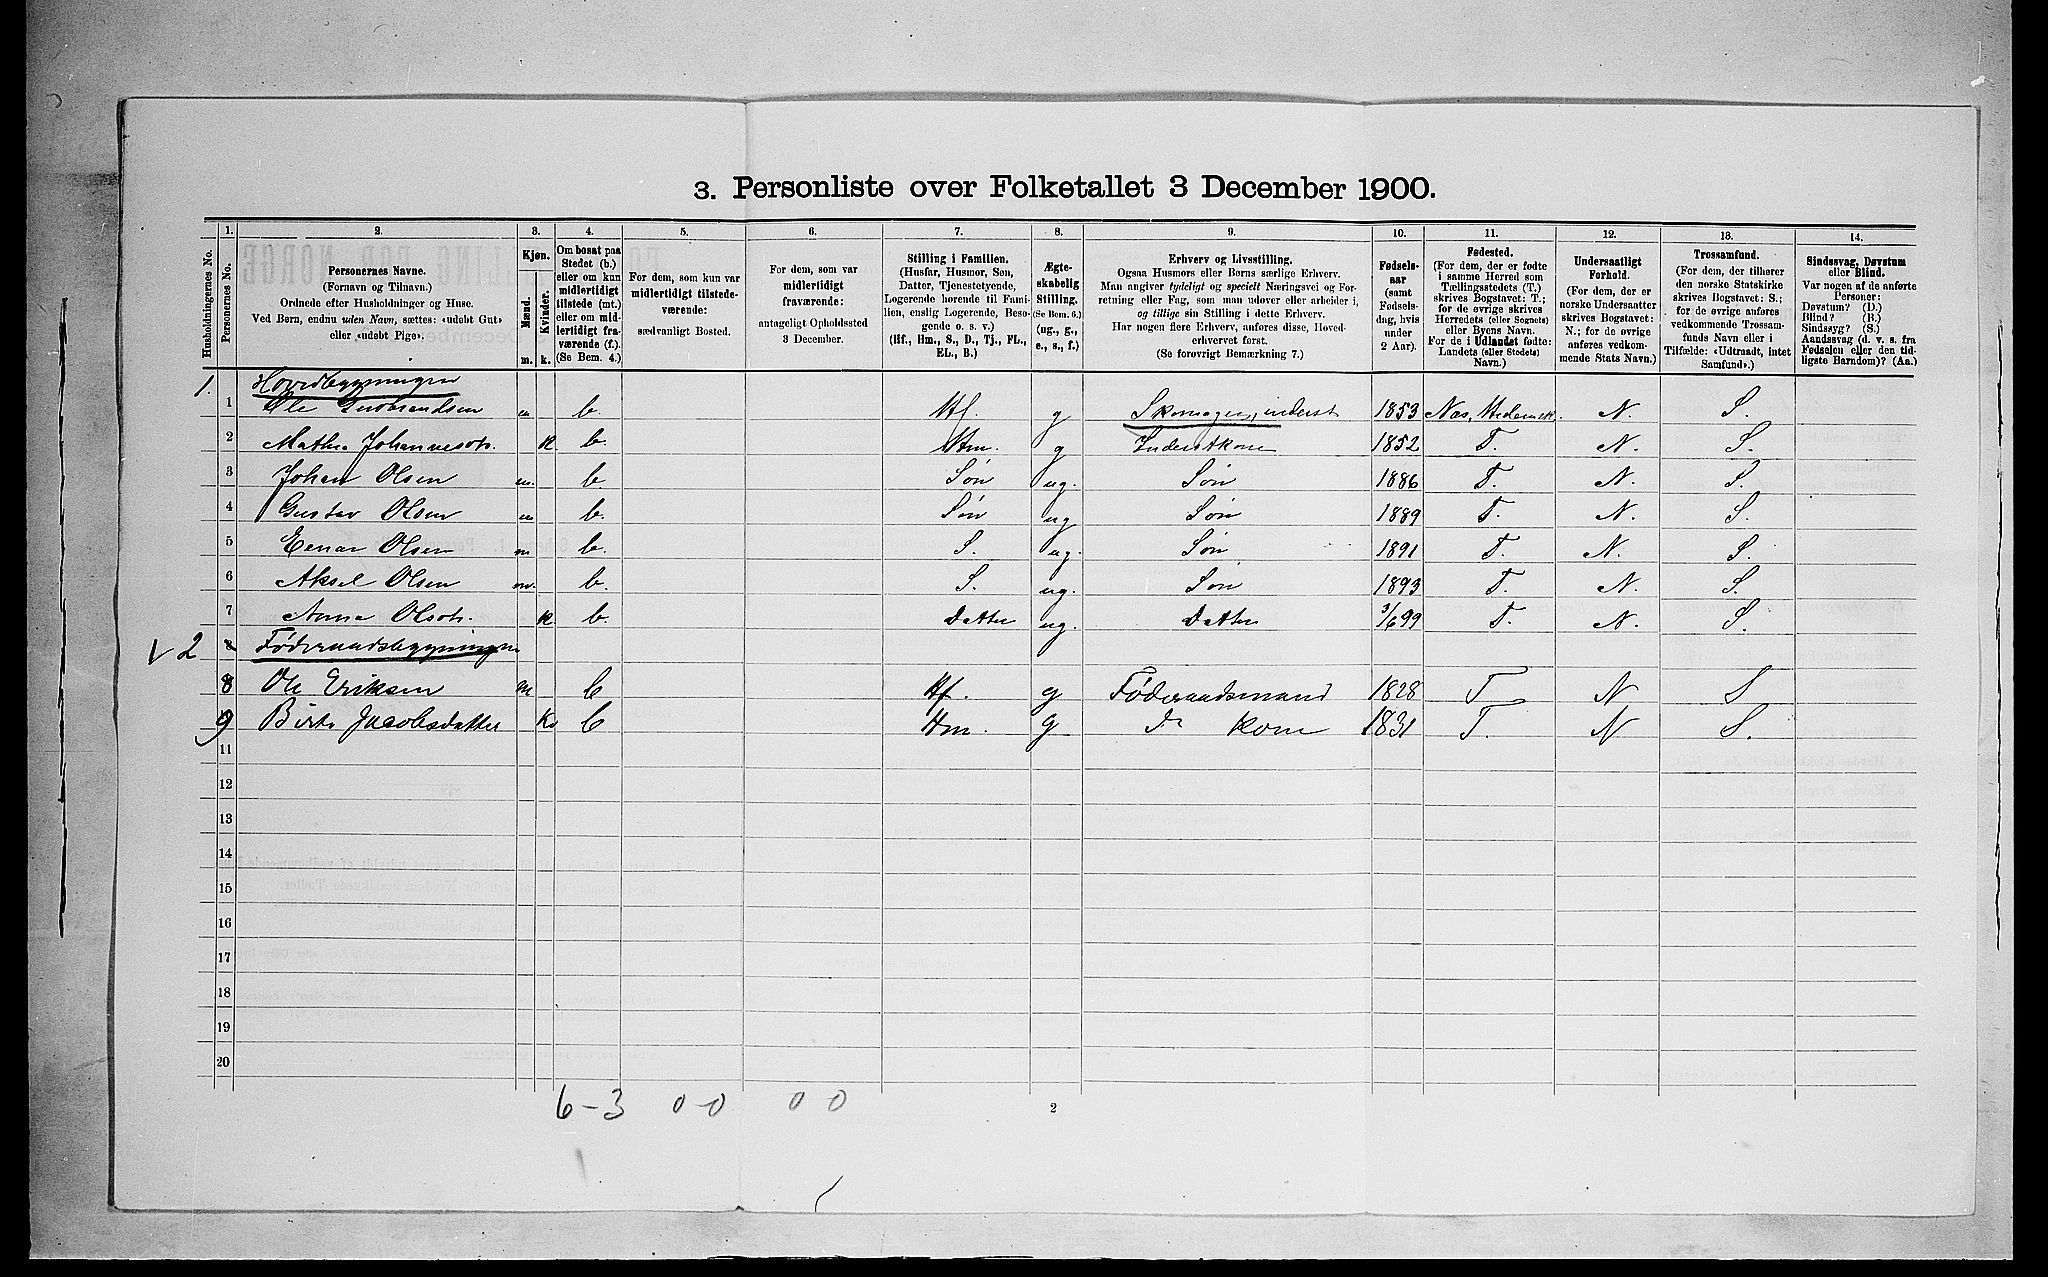 3. Personliste over Folketallet 3 December 1900.
Husholdningernes No.
1. Personernes No.
2. Personernes Navne. (Fornavn og Tilnavn.) Ordnede efter Husholdninger og Huse. Ved Børn, endnu uden Navn, sættes: «udøbt Gut» eller «udøbt Pige».
3. Kjøn. Mænd. m. Kvinder. k.
4. Om bosat paa Stedet (b.) eller om kun midlertidigt tilstede (mt.) eller om midlertidigt fraværende (f.). (Se Bem. 4.)
5. For dem, som kun var midlertidigt tilstedeværende: sædvanligt Bosted.
6. For dem, som var midlertidigt fraværende: antageligt Opholdssted 3 December.
7. Stilling i Familien. (Husfar, Husmor, Søn, Datter, Tjenestetyende, Logerende hørende til Familien, enslig Logerende, Besøgende o. s. v.) (Hf., Hm., S., D., Tj., FL., EL., B.)
8. Ægteskabelig Stilling. (Se Bem. 6.) (ug., g., e., s., f.)
9. Erhverv og Livsstilling. Ogsaa Husmors eller Børns særlige Erhverv. Man angiver tydeligt og specielt Næringsvei og Forretning eller Fag, som man udøver eller arbeider i, og tillige sin Stilling i dette Erhverv. Har nogen flere Erhverv, anføres disse, Hovederhvervet først. (Se forøvrigt Bemærkning 7.)
10. Fødselsaar (samt Fødselsdag, hvis under 2 Aar).
11. Fødested. (For dem, der er fødte i samme Herred som Tællingsstedets (T.) skrives Bogstavet: T.; for de øvrige skrives Herredets (eller Sognets) eller Byens Navn. For de i Udlandet fødte: Landets (eller Stedets) Navn.)
12. Undersaatligt Forhold. (For dem, der er norske Undersaatter skrives Bogstavet: N.; for de øvrige anføres vedkommende Stats Navn.)
13. Trossamfund. (For dem, der tilhører den norske Statskirke skrives Bogstavet: S.; for de øvrige anføres vedkommende Trossamfunds Navn eller i Tilfælde: «Udtraadt, intet Samfund».)
14. Sindssvag, Døvstum eller Blind. Var nogen af de anførte Personer: Døvstum? (D.) Blind? (B.) Sindssyg? (S.) Aandssvag (d. v. s. fra Fødselen eller den tidligste Barndom)? (Aa.)
1. Hovedbygningen
1 Ole Gudbrandsen m b. Hf. g Skomager, inderst 1853 Næs, Hedemk. N. S.
2 Mathea Johannesdt. k b. Hm. g Inderstkone 1852 T. N. S.
3 Johan Olsen m. b. Søn ug. Søn 1886 T. N. S.
4 Gustav Olsen m b. Søn ug Søn 1889 T. N. S.
5 Einar Olsen m b. S. ug. Søn 1891 T. N. S.
6 Aksel Olsen m. b. S. ug. Søn 1893 T. N. S.
7 Anna Olsdt. k b. Datter ug. Datter 3/6 99 T. N. S.
2 Føderaadsbygningen
8 Ole Eriksen m b Hf. g Føderaadsmand 1828 T N S
9 Birte Jacobsdatter k b Hm. g do kone 1831 T. N S.
11
12
13
14
15
16
17
18
19
20
6-3 0-0 0 0
2